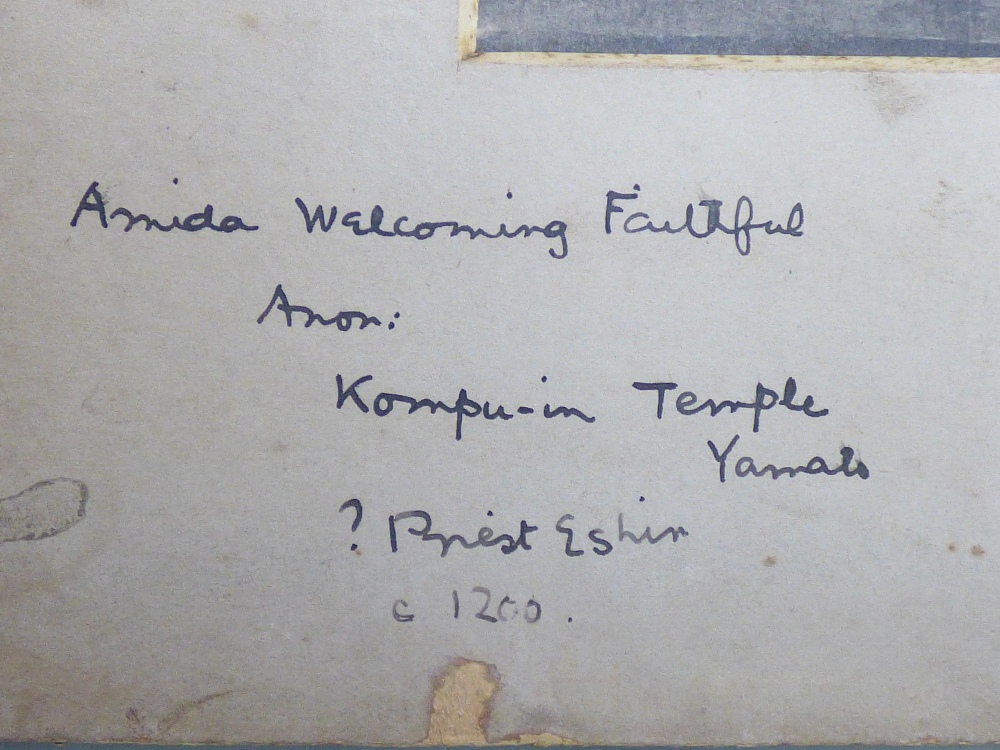 Amida Welcoming Faithful
Anon:
Kompu-in Temple
Yamato
? Priest Eshin
c 1200.